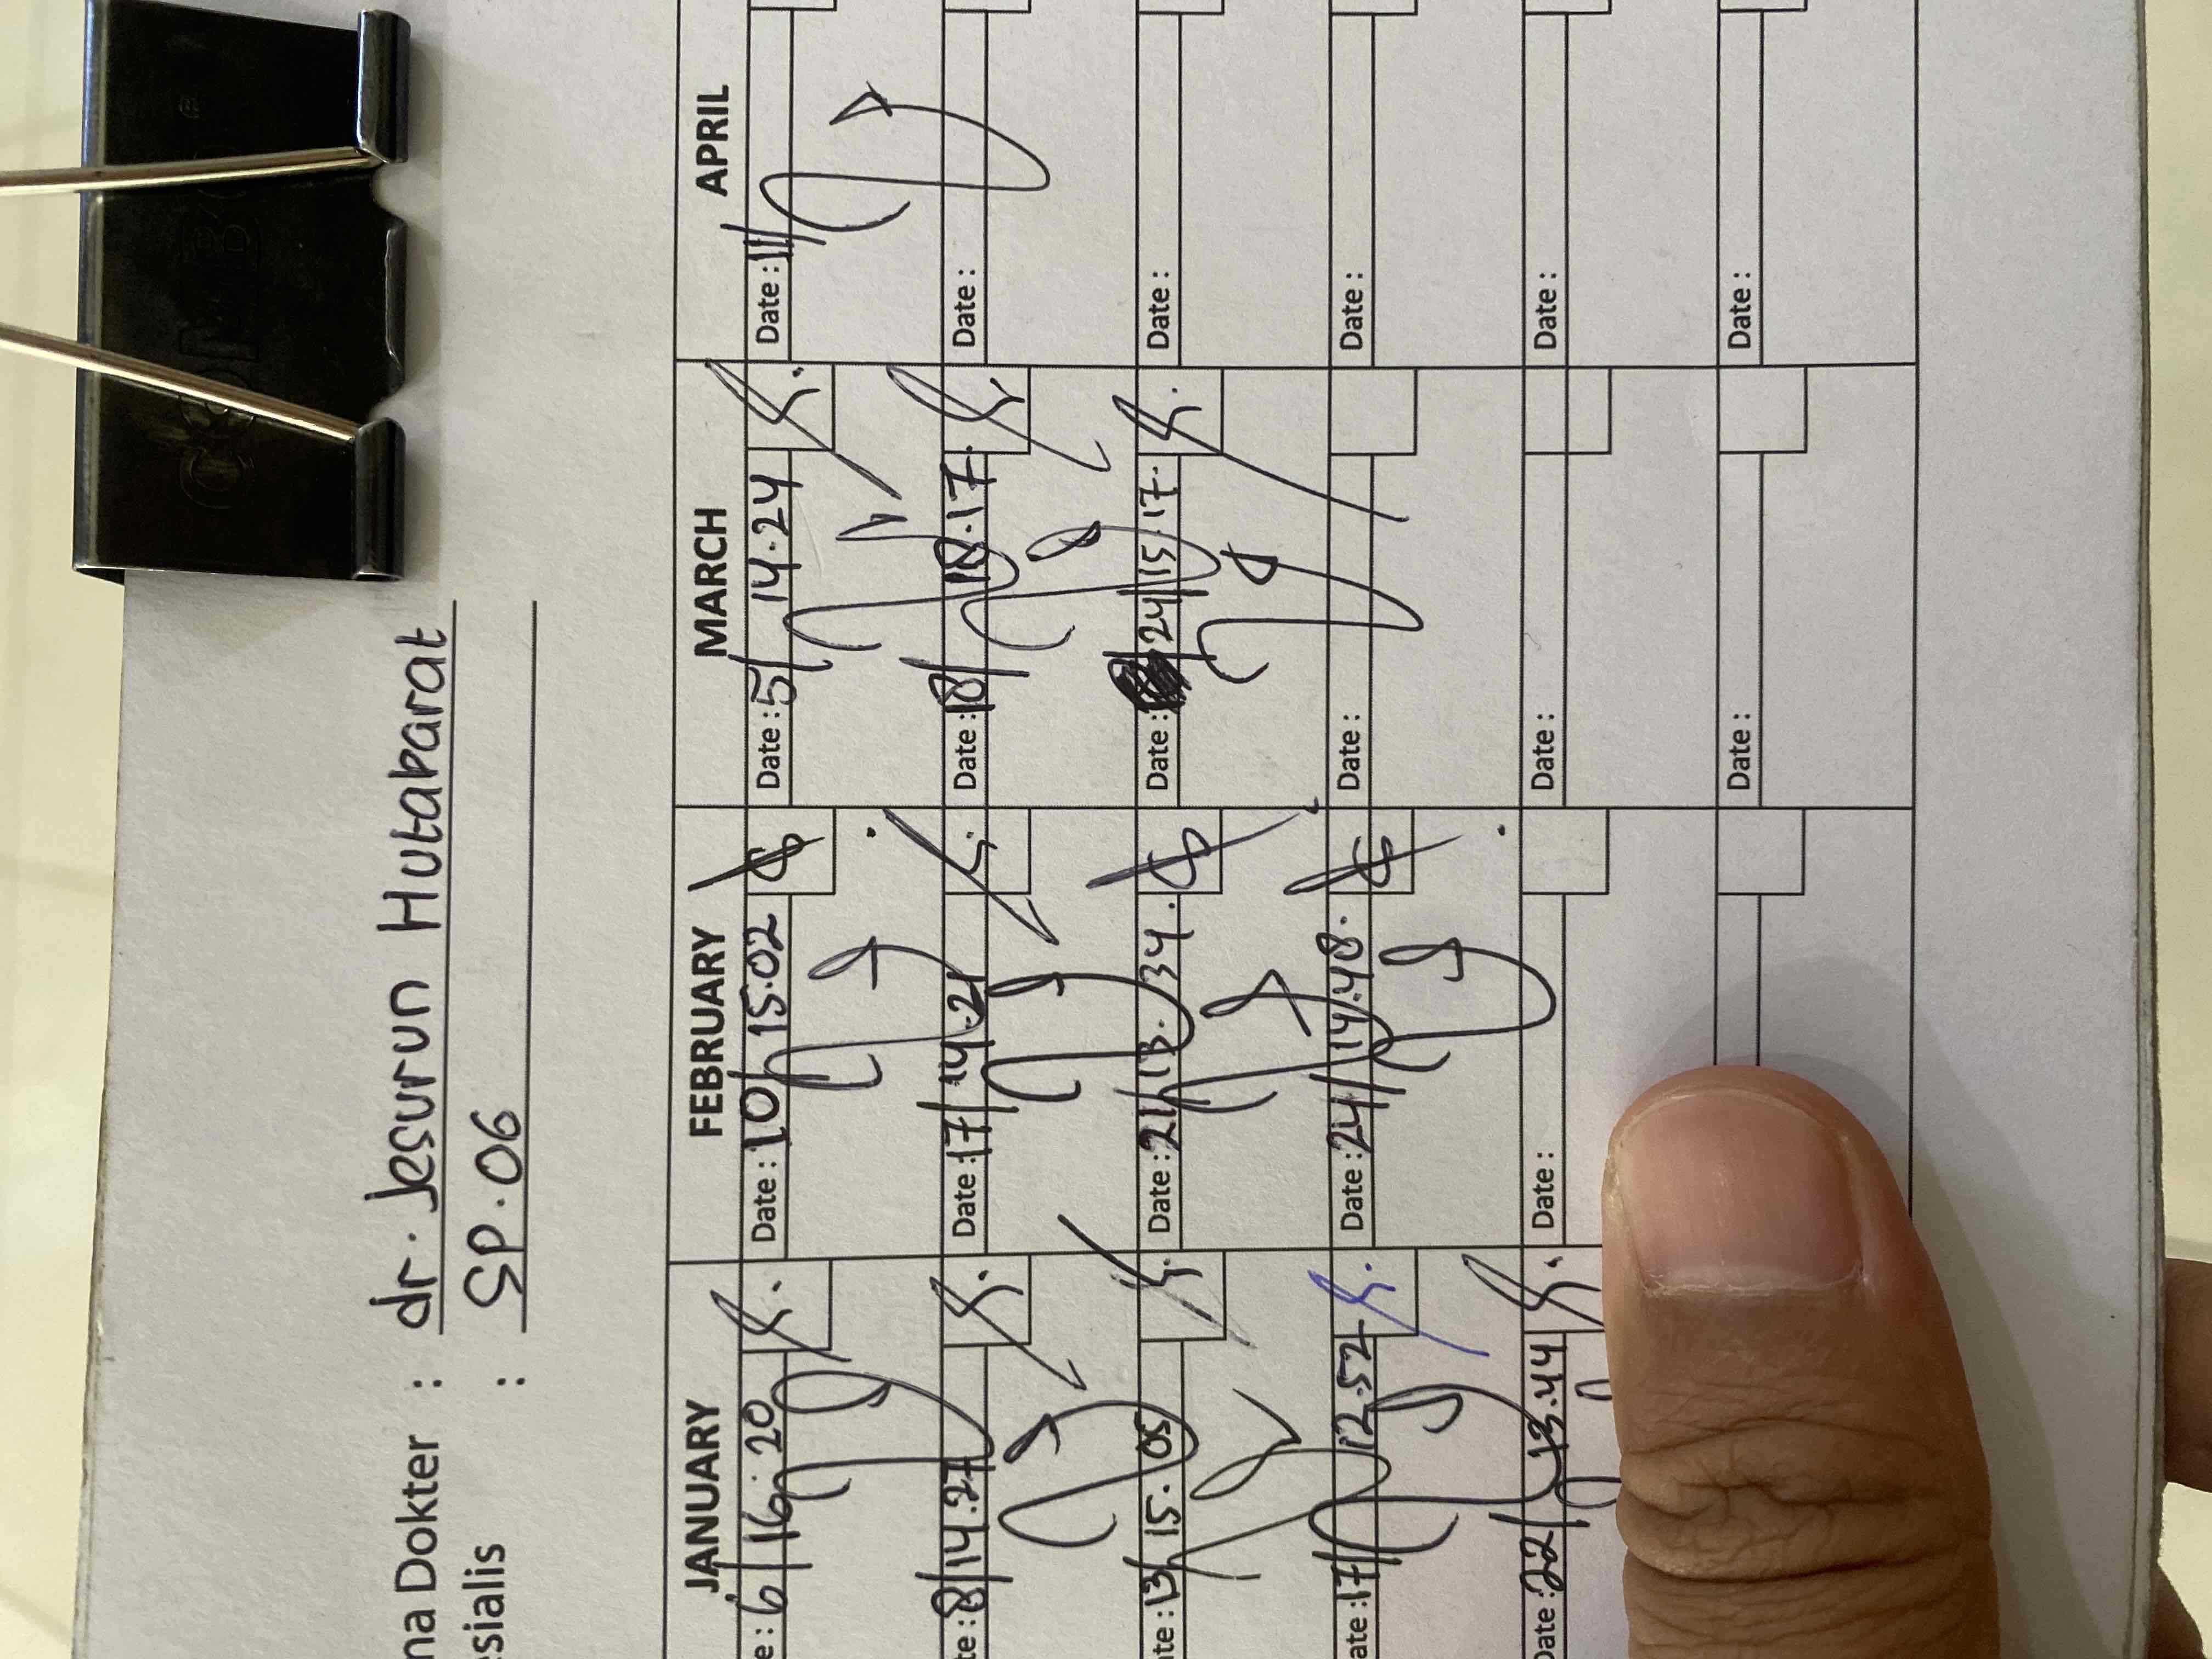 COMBO
ma Dokter : dr. Jesurun Hutabarat
esialis : SP.OG
JANUARY FEBRUARY MARCH APRIL
e : 6/16.20 Date : 10/15.02 Date : 5/ 14.24 Date : 11/
te : 8/14.27 Date : 17/14.21 Date : 18/18.17. Date :
ate : 13/15.05 Date : 21/13.34. Date : 24/15.17. Date :
ate : 17/12.52 Date : 24/14.48. Date : Date :
Date : 22/13.44 Date : Date : Date :
Date : Date :